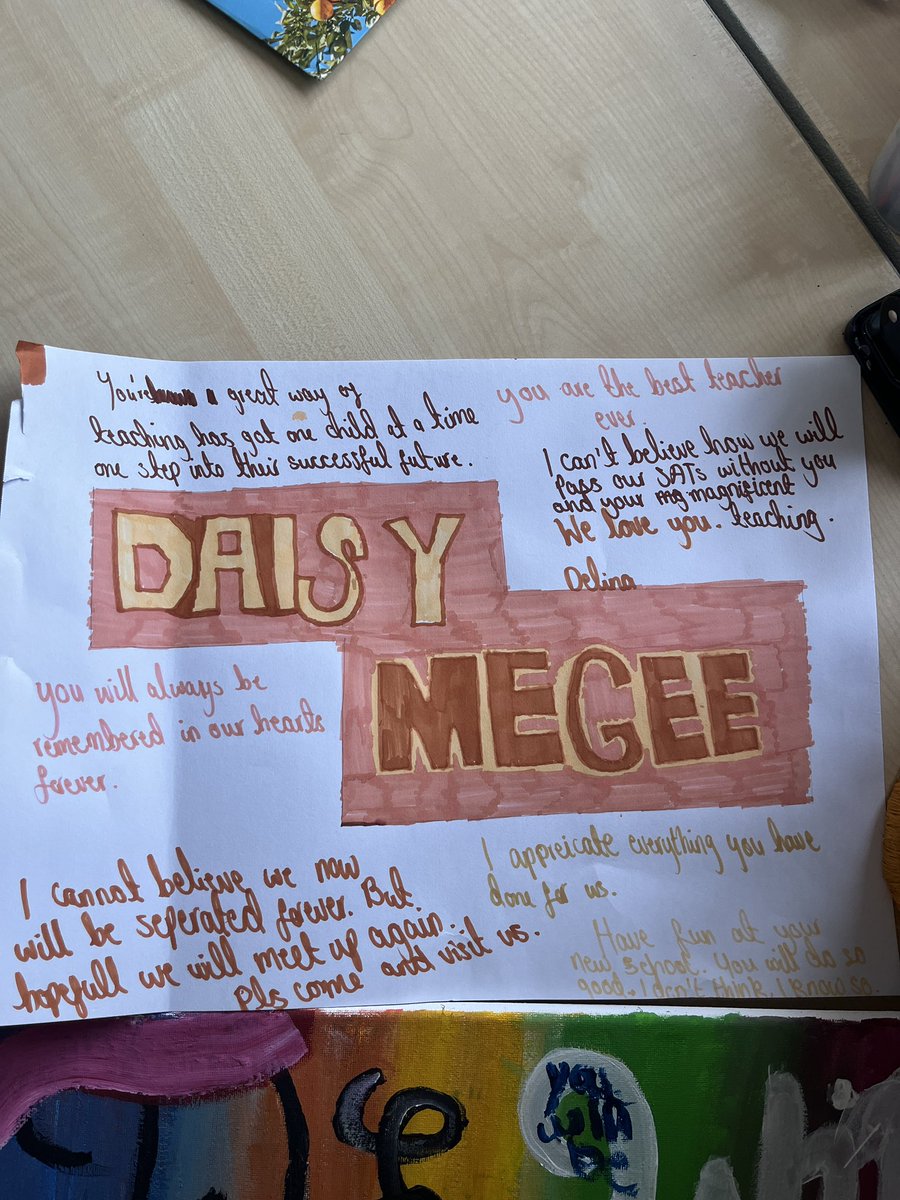 You're a great way of
teaching has got one child at a time
one step into their successful future.
you are the best teacher
ever.
I can't believe how we will
pass our SATs without you
and your magnificent
teaching.
We love you.
Delina
DAISY
MEGEE
you will always be
remembered in our hearts
forever.
I cannot believe we now
will be seperated forever. But
hopefull we will meet up again.
Pls come and visit us.
I appreicate everything you have
done for us.
Have fun at your
new school. You will do so
good. I don't think, I know so.
you
will
be